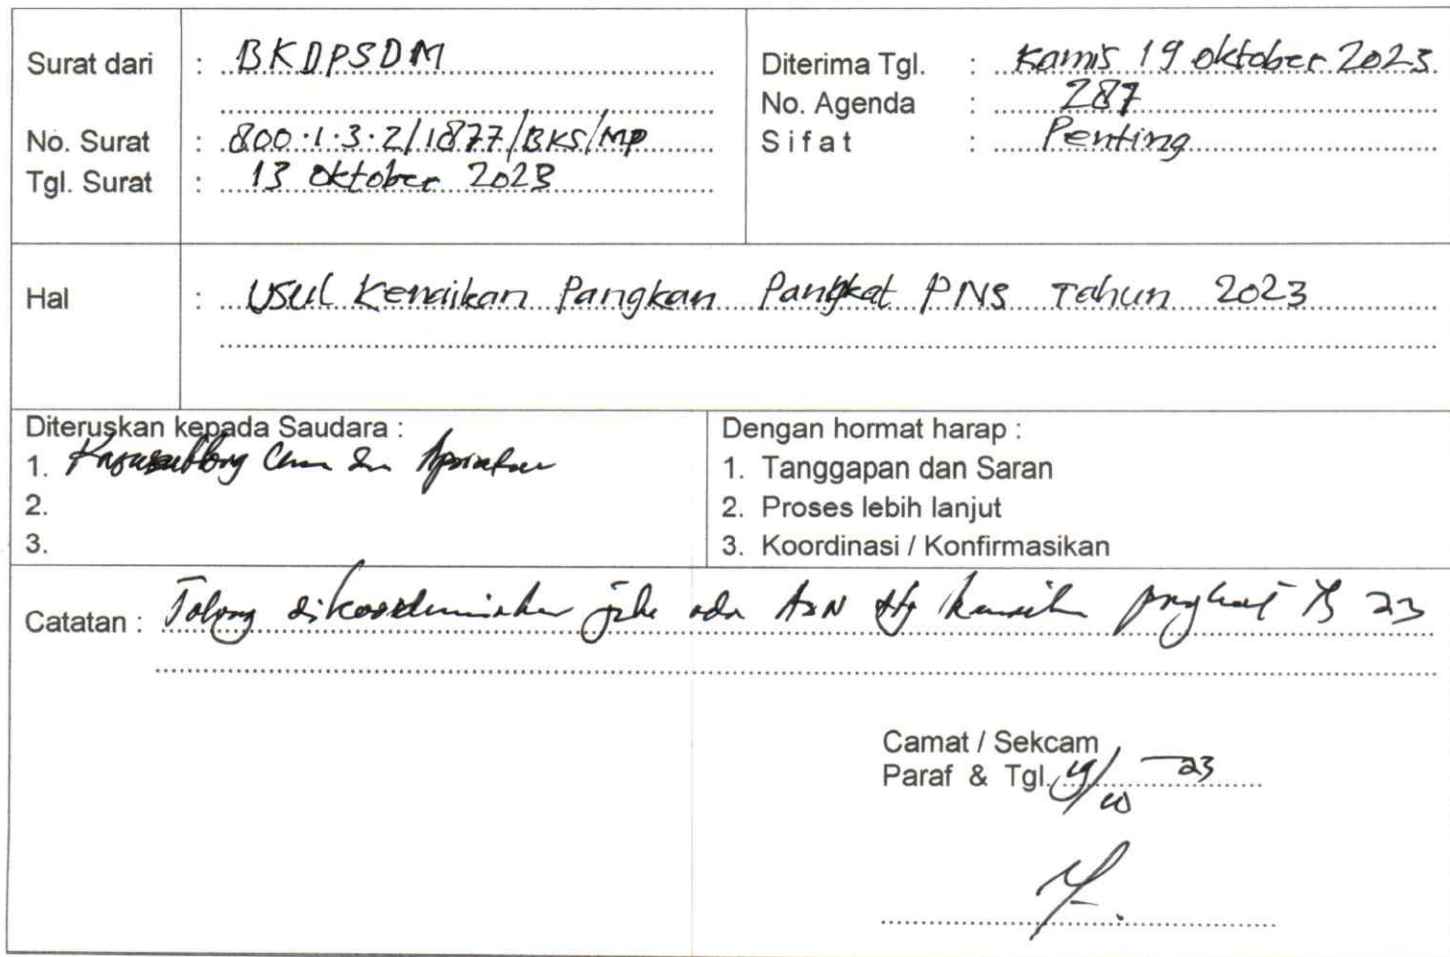 Surat dari : BKDPSDM
No. Surat : 800.1.3.2/1877/BKS/MP
Tgl. Surat : 13 Oktober 2023
Diterima Tgl. : Kamis 19 Oktober 2023
No. Agenda : 287
Sifat : Penting
Hal : Usul Kenaikan Pangkan Pangkat PNS Tahun 2023
Diteruskan kepada Saudara :
1.
2.
3.
Dengan hormat harap :
1. Tanggapan dan Saran
2. Proses lebih lanjut
3. Koordinasi / Konfirmasikan
Catatan : Tolong dikoordinasikan jika ada ASN pangkat 23
Camat / Sekcam
Paraf & Tgl. 19/10 - 23